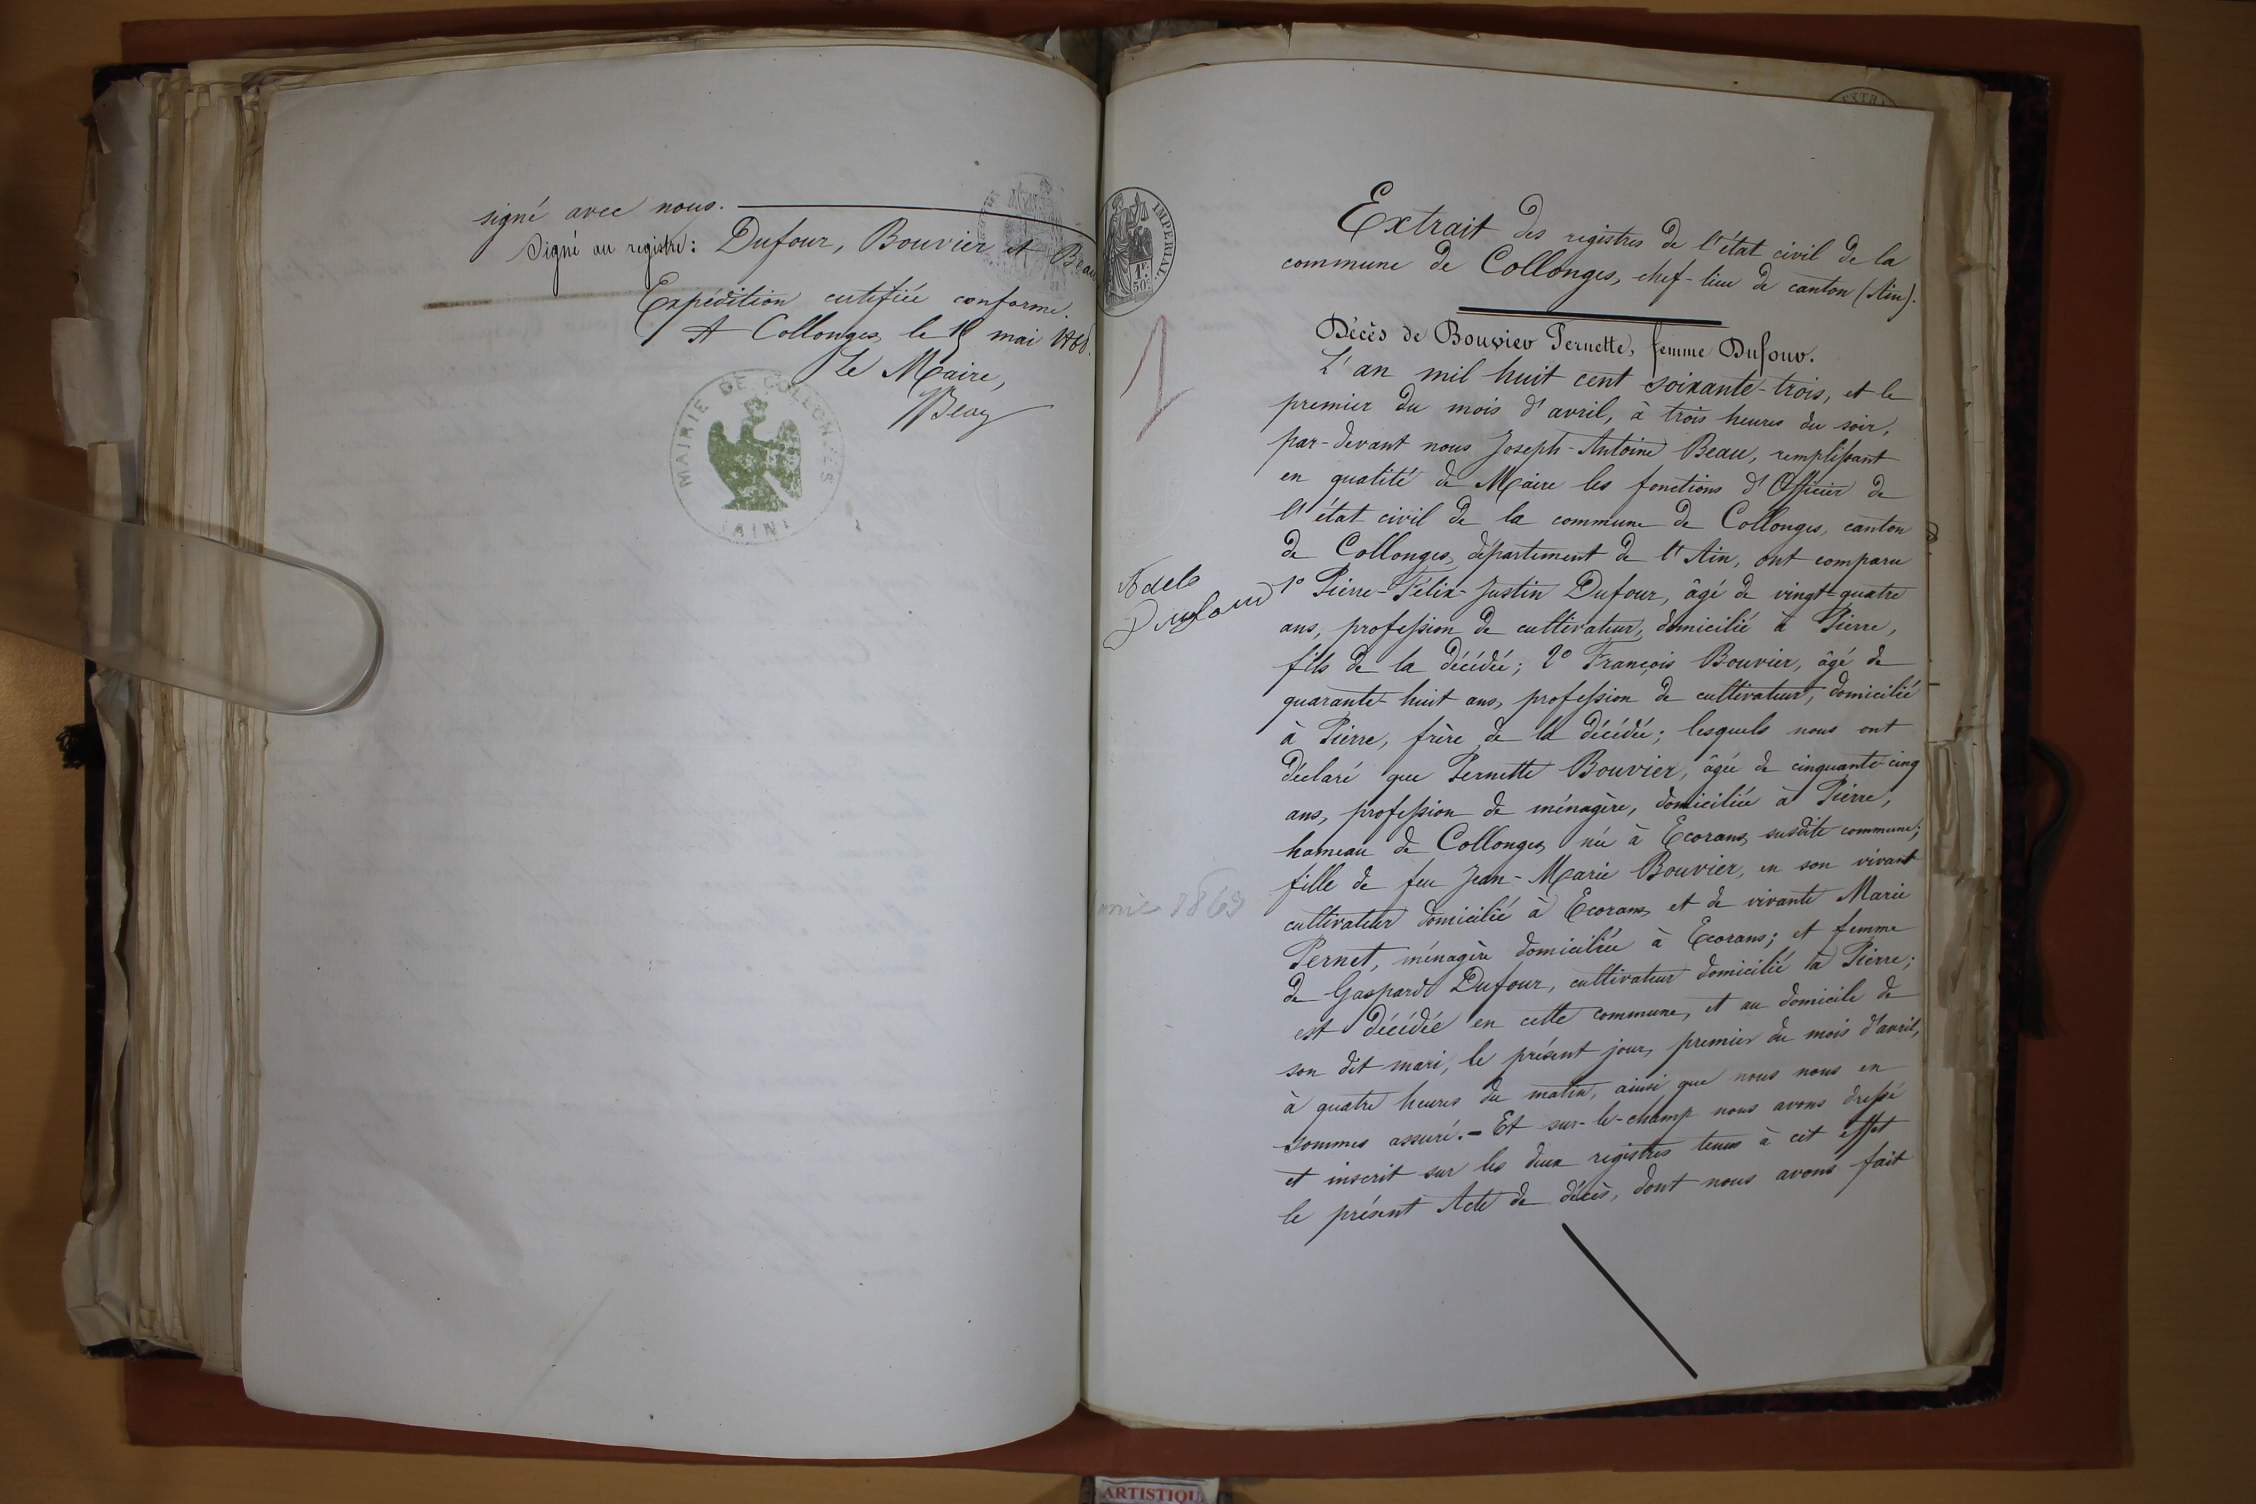 signé avec nous.
Signé au registre: Dufour, Bouvier et Beau
Expédition certifiée conforme.
A Collonges, le 15 mai 1868.
Le Maire,
Beau
MAIRIE DE COLLONGES
(AIN)
IMPERIAL
1F
50C
EXTRA
Extrait des registres de l'état civil de la
commune de Collonges, chef-lieu de canton (Ain).
Décès de Bouvier Pernette, femme Dufour.
1
L'an mil huit cent soixante-trois, et le
premier du mois d'avril, à trois heures du soir,
par-devant nous Joseph-Antoine Beau, remplissant
en qualité de Maire les fonctions d'Officier de
l'état civil de la commune de Collonges, canton
de Collonges, département de l'Ain, ont comparu
1º Pierre-Félix-Justin Dufour, âgé de vingt-quatre
ans, profession de cultivateur, domicilié à Pierre,
fils de la décédée; 2º François Bouvier, âgé de
quarante-huit ans, profession de cultivateur, domicilié
à Pierre, frère de la décédée; lesquels nous ont
déclaré que Pernette Bouvier, âgée de cinquante-cinq
ans, profession de ménagère, domiciliée à Pierre,
hameau de Collonges, née à Ecorans, susdite commune;
fille de feu Jean-Marie Bouvier, en son vivant
cultivateur domicilié à Ecorans, et de vivante Marie
Pernet, ménagère domiciliée à Ecorans; et femme
de Gaspard Dufour, cultivateur domicilié à Pierre;
est décédée en cette commune, et au domicile de
son dit mari, le présent jour, premier du mois d'avril,
à quatre heures du matin, ainsi que nous nous en
sommes assuré. - Et sur-le-champ nous avons dressé
et inscrit sur les deux registres tenus à cet effet
le présent Acte de décès, dont nous avons fait
ARTISTIQU